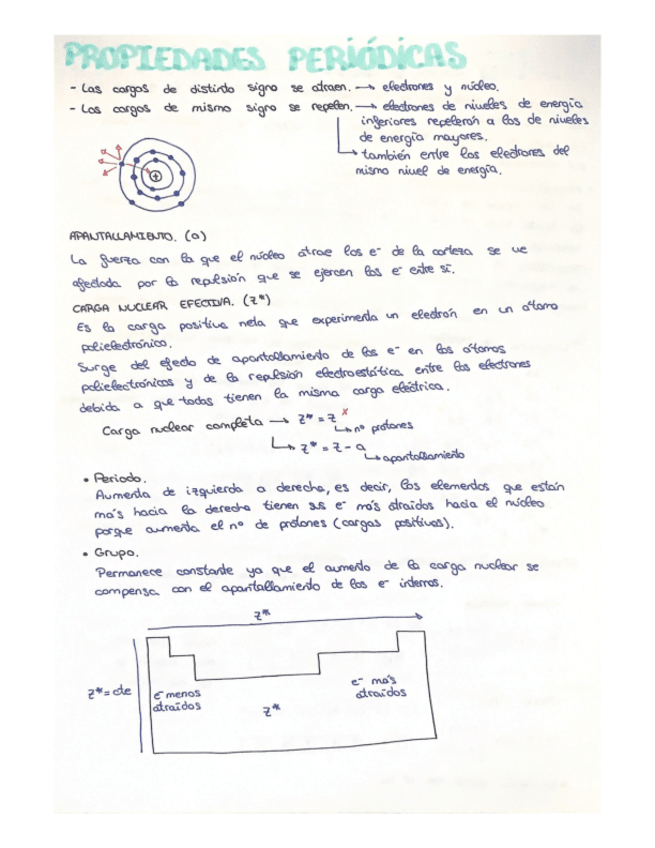 PROPIEDADES PERIÓDICAS
- Las cargas de distinto signo se atraen. → electrones y núcleo.
- Las cargas de mismo signo se repelen. → electrones de niveles de energía
inferiores repelerán a los de niveles
de energía mayores.
↳ también entre los electrones del
mismo nivel de energía.
+
APANTALLAMIENTO. (a)
La fuerza con la que el núcleo atrae los e⁻ de la corteza se ve
afectada por la repulsión que se ejercen los e⁻ entre sí.
CARGA NUCLEAR EFECTIVA. (Z*)
Es la carga positiva neta que experimenta un electrón en un átomo
polielectrónico.
Surge del efecto de apantallamiento de los e⁻ en los átomos
polielectrónicos y de la repulsión electroestática entre los electrones
debida a que todos tienen la misma carga eléctrica.
Carga nuclear completa → Z* = Z x
↳ nº protones
↳ Z* = Z - a
↳ apantallamiento
• Periodo.
Aumenta de izquierda a derecha, es decir, los elementos que están
más hacia la derecha tienen sus e⁻ más atraídos hacia el núcleo
porque aumenta el nº de protones (cargas positivas).
• Grupo.
Permanece constante ya que el aumento de la carga nuclear se
compensa con el apantallamiento de los e⁻ internos.
Z*
Z* = cte
e⁻ menos
atraídos
Z*
e⁻ más
atraídos